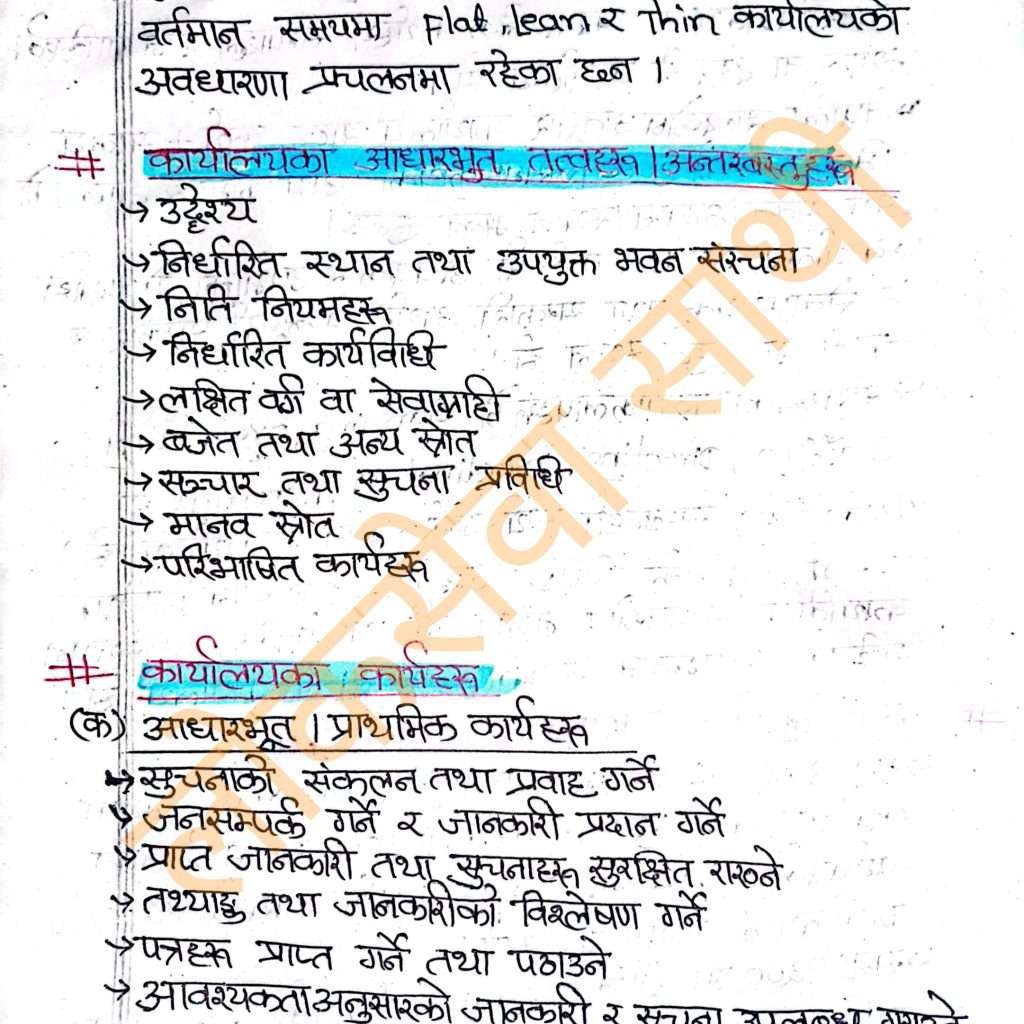 वर्तमान समयमा Flat, lean र Thin कार्यालयको
अवधारणा प्रचलनमा रहेका छन ।
# कार्यालयका आधारभुत तत्वहरू / अन्तरवस्तुहरू
→ उद्देश्य
→ निर्धारित स्थान तथा उपयुक्त भवन संरचना
→ निति नियमहरू
→ निर्धारित कार्यविधि
→ लक्षित वर्ग वा सेवाग्राही
→ बजेत तथा अन्य स्रोत
→ सञ्चार तथा सुचना प्रविधि
→ मानव स्रोत
→ परिभाषित कार्यहरू
# कार्यालयका कार्यहरू
(क) आधारभूत / प्राथमिक कार्यहरू
→ सुचनाको संकलन तथा प्रवाह गर्ने
→ जनसम्पर्क गर्ने र जानकारी प्रदान गर्ने
→ प्राप्त जानकारी तथा सुचनाहरू सुरक्षित राख्ने
→ तथ्याङ्क तथा जानकारीको विश्लेषण गर्ने
→ पत्रहरू प्राप्त गर्ने तथा पठाउने
→ आवश्यकता अनुसारको जानकारी र सुचना उपलब्ध
लोकसेवा साथी